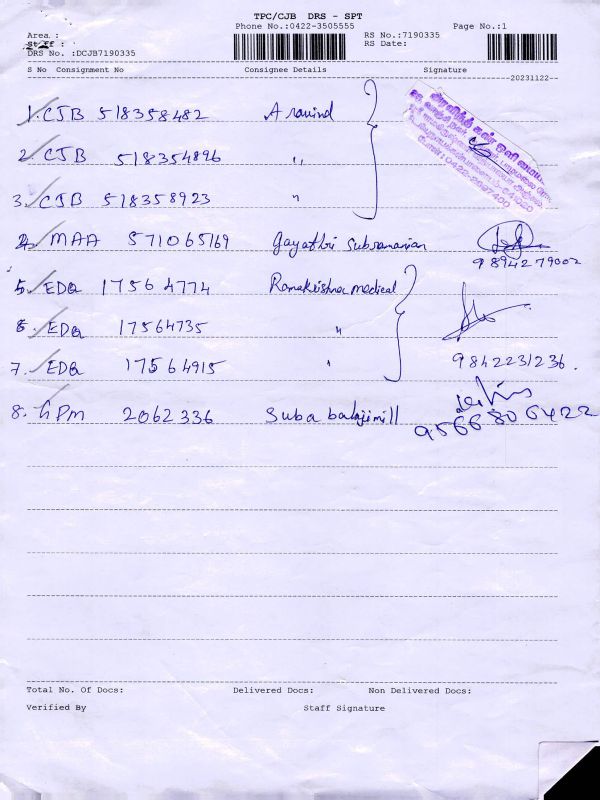 TPC/CJB DRS - SPT
Phone No.:0422-3505555
Page No.:1
Area :
Staff :
RS No.:7190335
RS Date:
DRS No. :DCJB7190335
S No Consignment No Consignee Details Signature
20231122
1. CJB 518358482 Aravind
2. CJB 518354896 "
3. CJB 518358923 "
4. MAA 571065169 Gayathri Subramanian
9894279002
5. EDQ 17564774 Ramakrishna medical
6. EDQ 17564735 "
7. EDQ 17564915 "
9842231236.
8. GPM 2062336 Suba balaji mill
9566806422
Total No. Of Docs: Delivered Docs: Non Delivered Docs:
Verified By Staff Signature